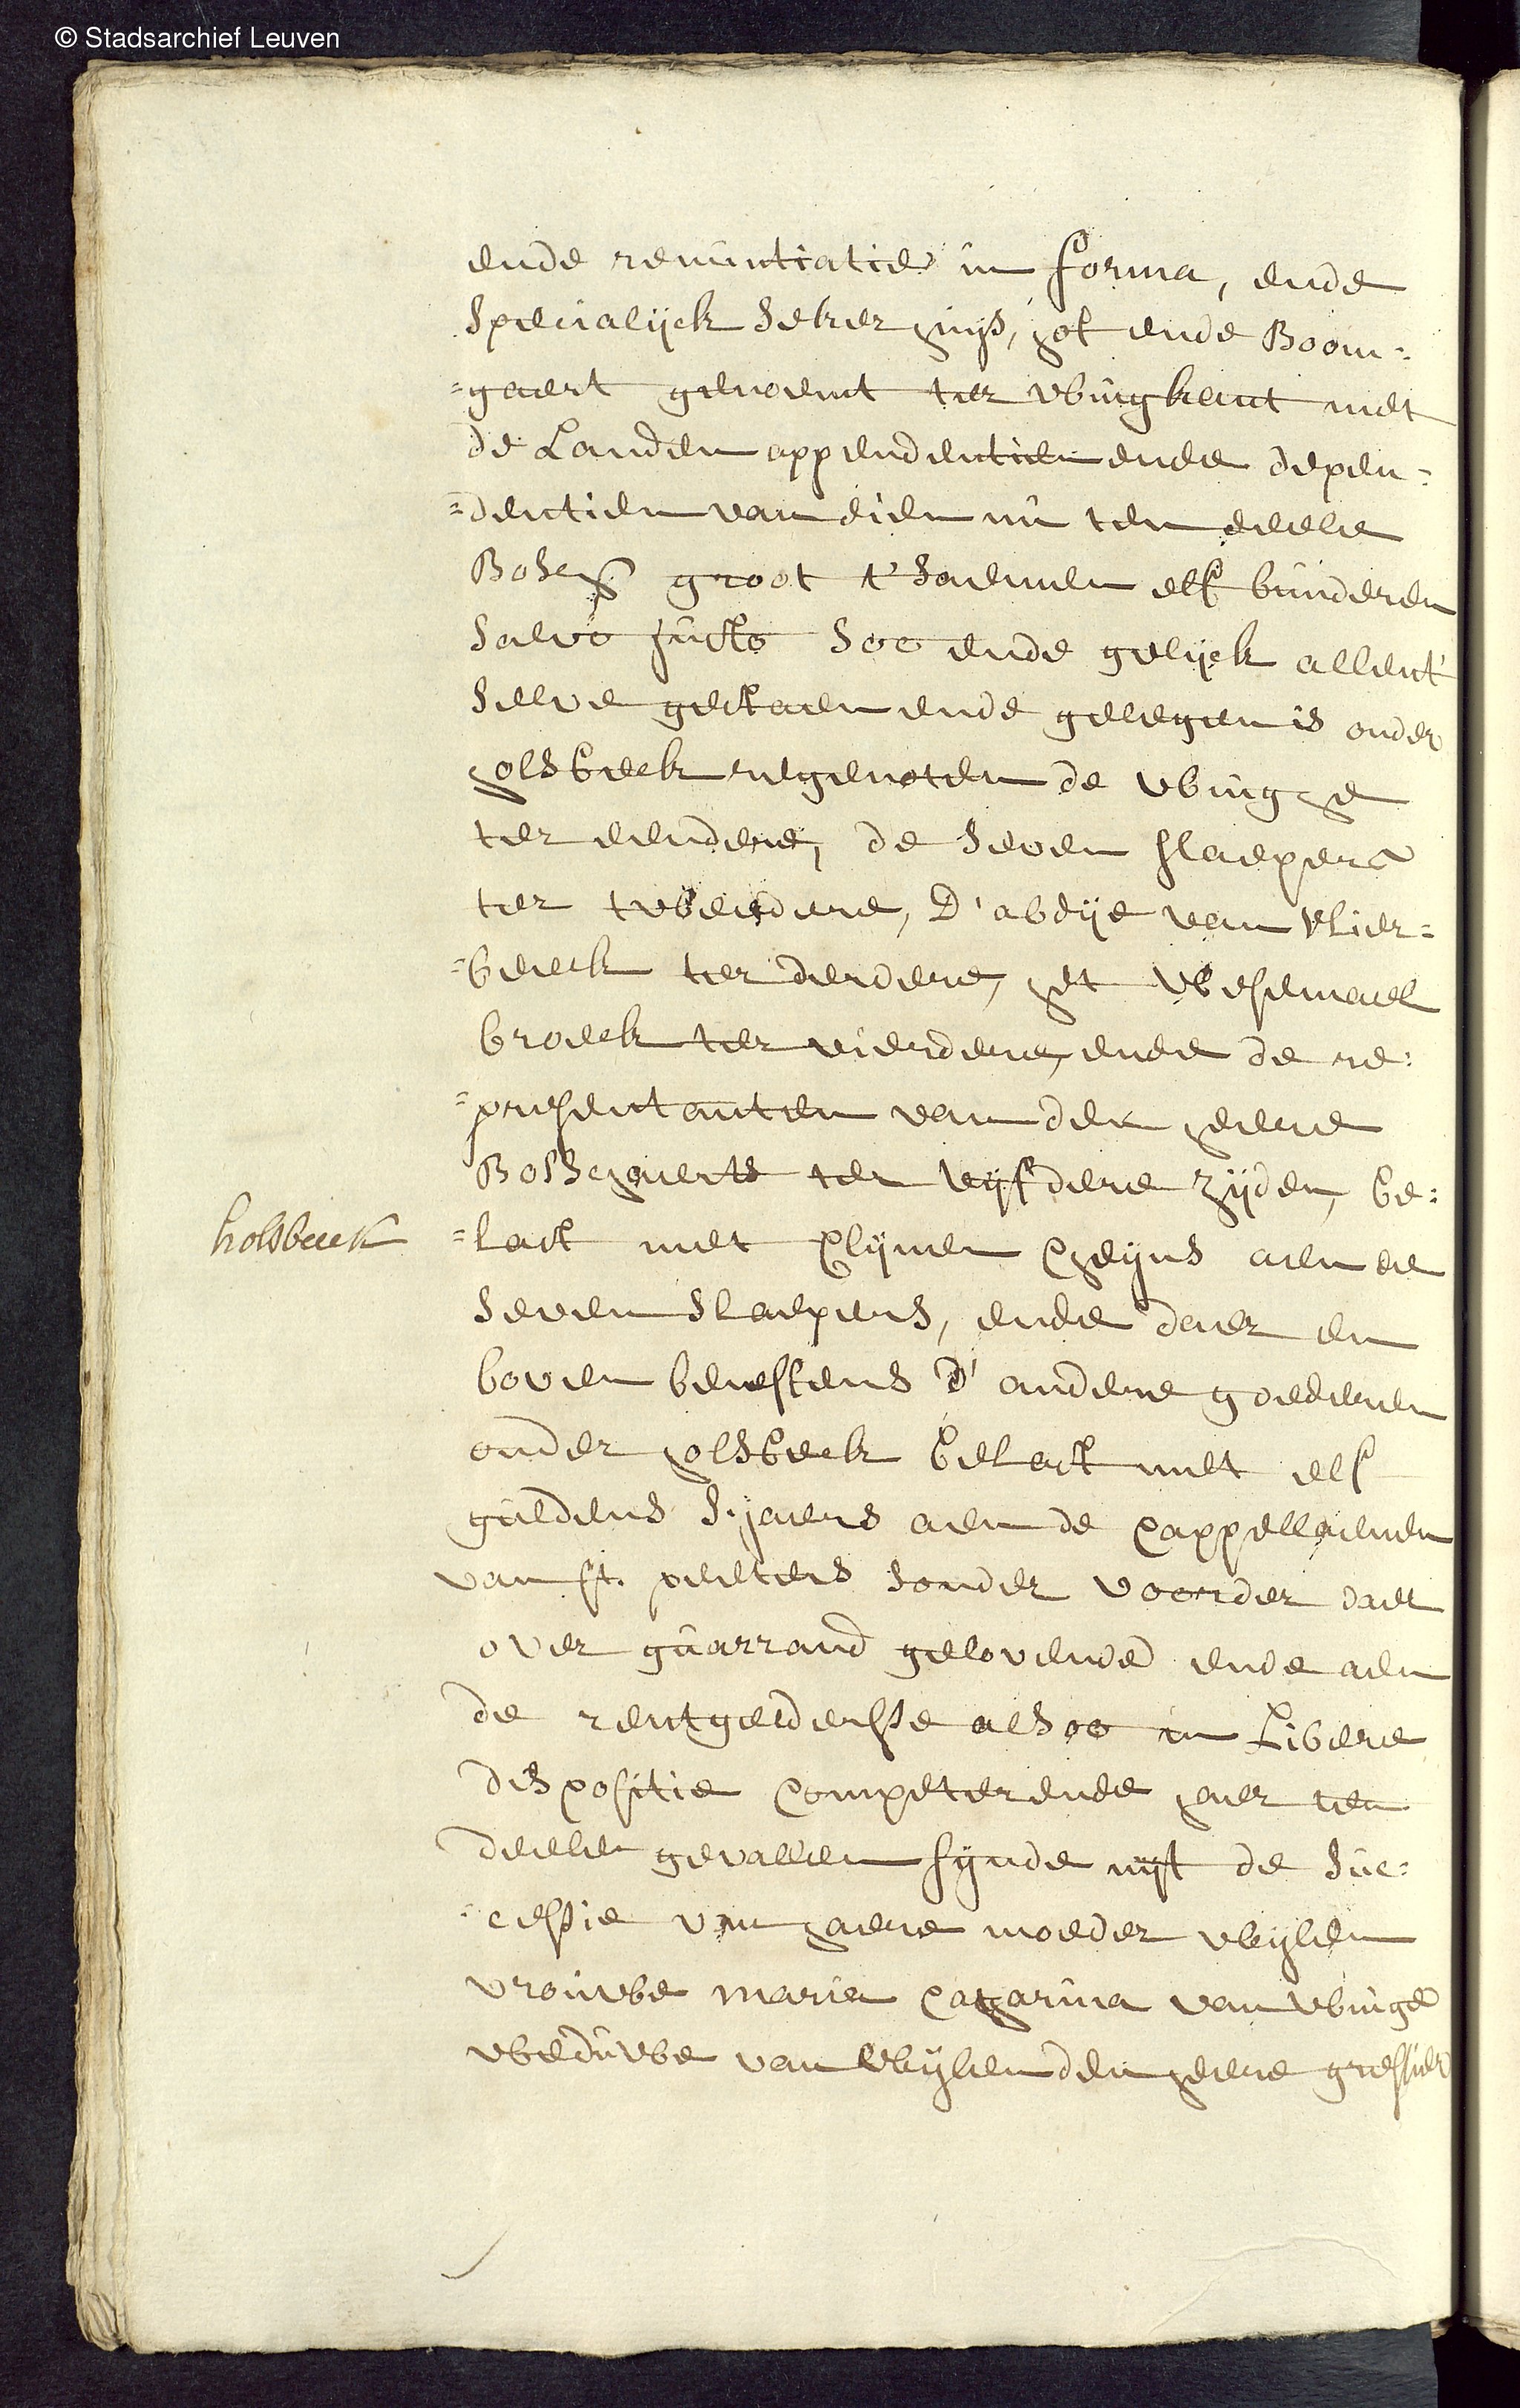 © Stadsarchief Leuven
ende renuntiatie in forma, ende
specialyck seker huys, hof ende Boom=
=gaert genoemt ter wingheut met
de Landen appendentien ende depen=
=dentien van dien nu ten deele
Bosch groot t'saemen elf bunderen
salvo justo soo ende gelyck allent'
selve gestaen ende gelegen is onder
holsbeeck regenoten de winghe
ter eendere, de seven slaepers
ter tweedere, d'abdye van vlier=
=beeck ter derdere, het wesemael
broeck ter vierdere, ende de re=
=presentanten van den heere
Bosschaerts ter vyfdere zyden, be=
holsbeeck
=last met clynen cheyns aen de
seven slaepers, ende daer en
boven beneffens d'andere goederen
onder holsbeeck belast met elf
guldens s'jaers aen de cappellaenen
van st. peeters sonder voorder daer
over guarrand gelovende ende aen
de rentgeldersse alsoo in Libere
dispositie competerende haer ten
deele gevallen synde uyt de suc=
=cessie van haere moeder wylen
vrouwe maria catharina van winghe
weduwe van wylen den heere greffier